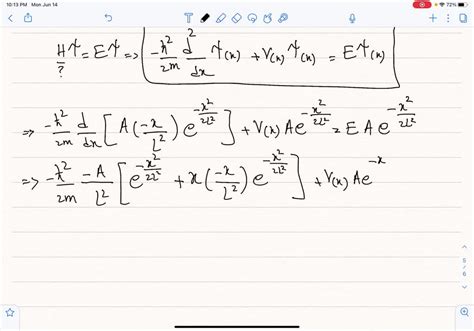 10:13 PM Mon Jun 14
72%
Hψ = Eψ => -ħ²/2m d²/dx ψ(x) + V(x) ψ(x) = E ψ(x)
?
=> -ħ²/2m d/dx [A(-x/L²) e^(-x²/2L²)] + V(x) A e^(-x²/2L²) = E A e^(-x²/2L²)
=> -ħ²/2m -A/L² [e^(-x²/2L²) + x(-x/L²) e^(-x²/2L²)] + V(x) A e^(-x
5
6